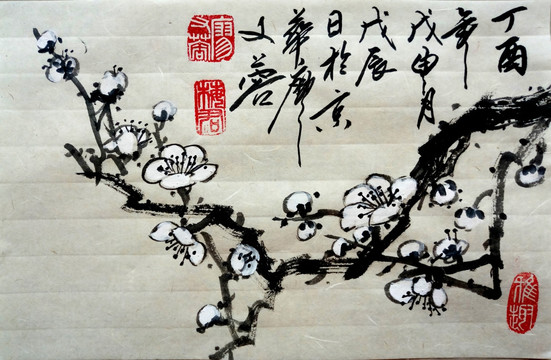 丁酉
年
戊申月
戊辰
日於京
華
文蓉
雅趣